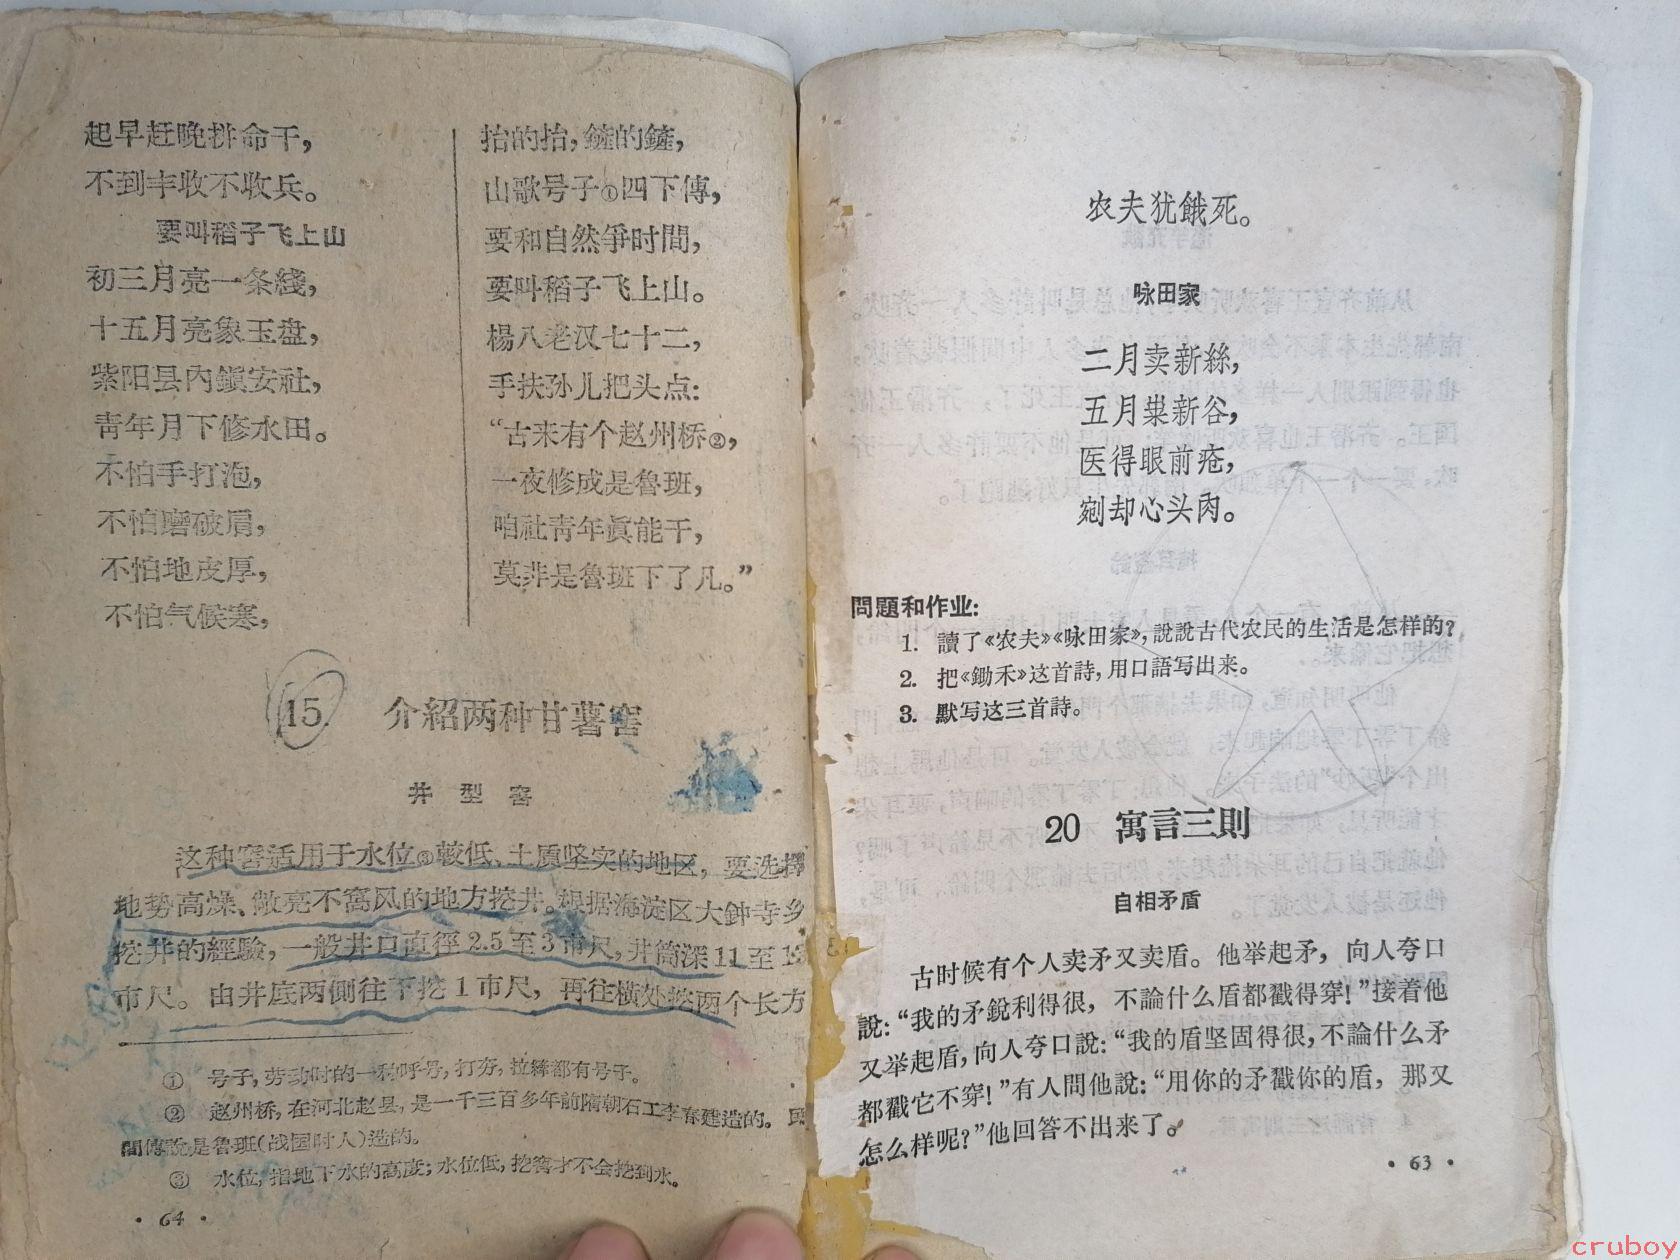 起早赶晚拚命干，
不到丰收不收兵。
要叫稻子飞上山
初三月亮一条綫，
十五月亮象玉盘，
紫阳县內鎭安社，
靑年月下修水田。
不怕手打泡，
不怕磨破肩，
不怕地皮厚，
不怕气候寒，
抬的抬，鏟的鏟，
山歌号子①四下傳，
要和自然爭时間，
要叫稻子飞上山。
楊八老汉七十二，
手扶孙儿把头点：
“古来有个赵州桥②，
一夜修成是魯班，
咱社靑年眞能干，
莫非是魯班下了凡。”
15. 介紹两种甘薯窖
井型窖
这种窖适用于水位③較低、土质坚实的地区，要选擇
地势高燥、敞亮不窩风的地方挖井。根据海淀区大鈡寺乡
挖井的經驗，一般井口直徑2.5至3市尺，井筒深11至1
市尺。由井底两側往下挖1市尺，再往横处挖两个长方
① 号子，劳动时的一种呼号，打夯，拉縴都有号子。
② 赵州桥，在河北赵县，是一千三百多年前隋朝石工李春建造的。民
間傳說是魯班（战国时人）造的。
③ 水位，指地下水的高度；水位低，挖窖才不会挖到水。
· 64 ·
农夫犹餓死。
咏田家
二月卖新絲，
五月粜新谷，
医得眼前疮，
剜却心头肉。
問題和作业：
1. 讀了《农夫》《咏田家》，說說古代农民的生活是怎样的？
2. 把《鋤禾》这首詩，用口語写出来。
3. 默写这三首詩。
20 寓言三則
自相矛盾
古时候有个人卖矛又卖盾。他举起矛，向人夸口
說：“我的矛銳利得很，不論什么盾都戳得穿！”接着他
又举起盾，向人夸口說：“我的盾坚固得很，不論什么矛
都戳它不穿！”有人問他說：“用你的矛戳你的盾，那又
怎么样呢？”他回答不出来了。
· 63 ·
cruboy